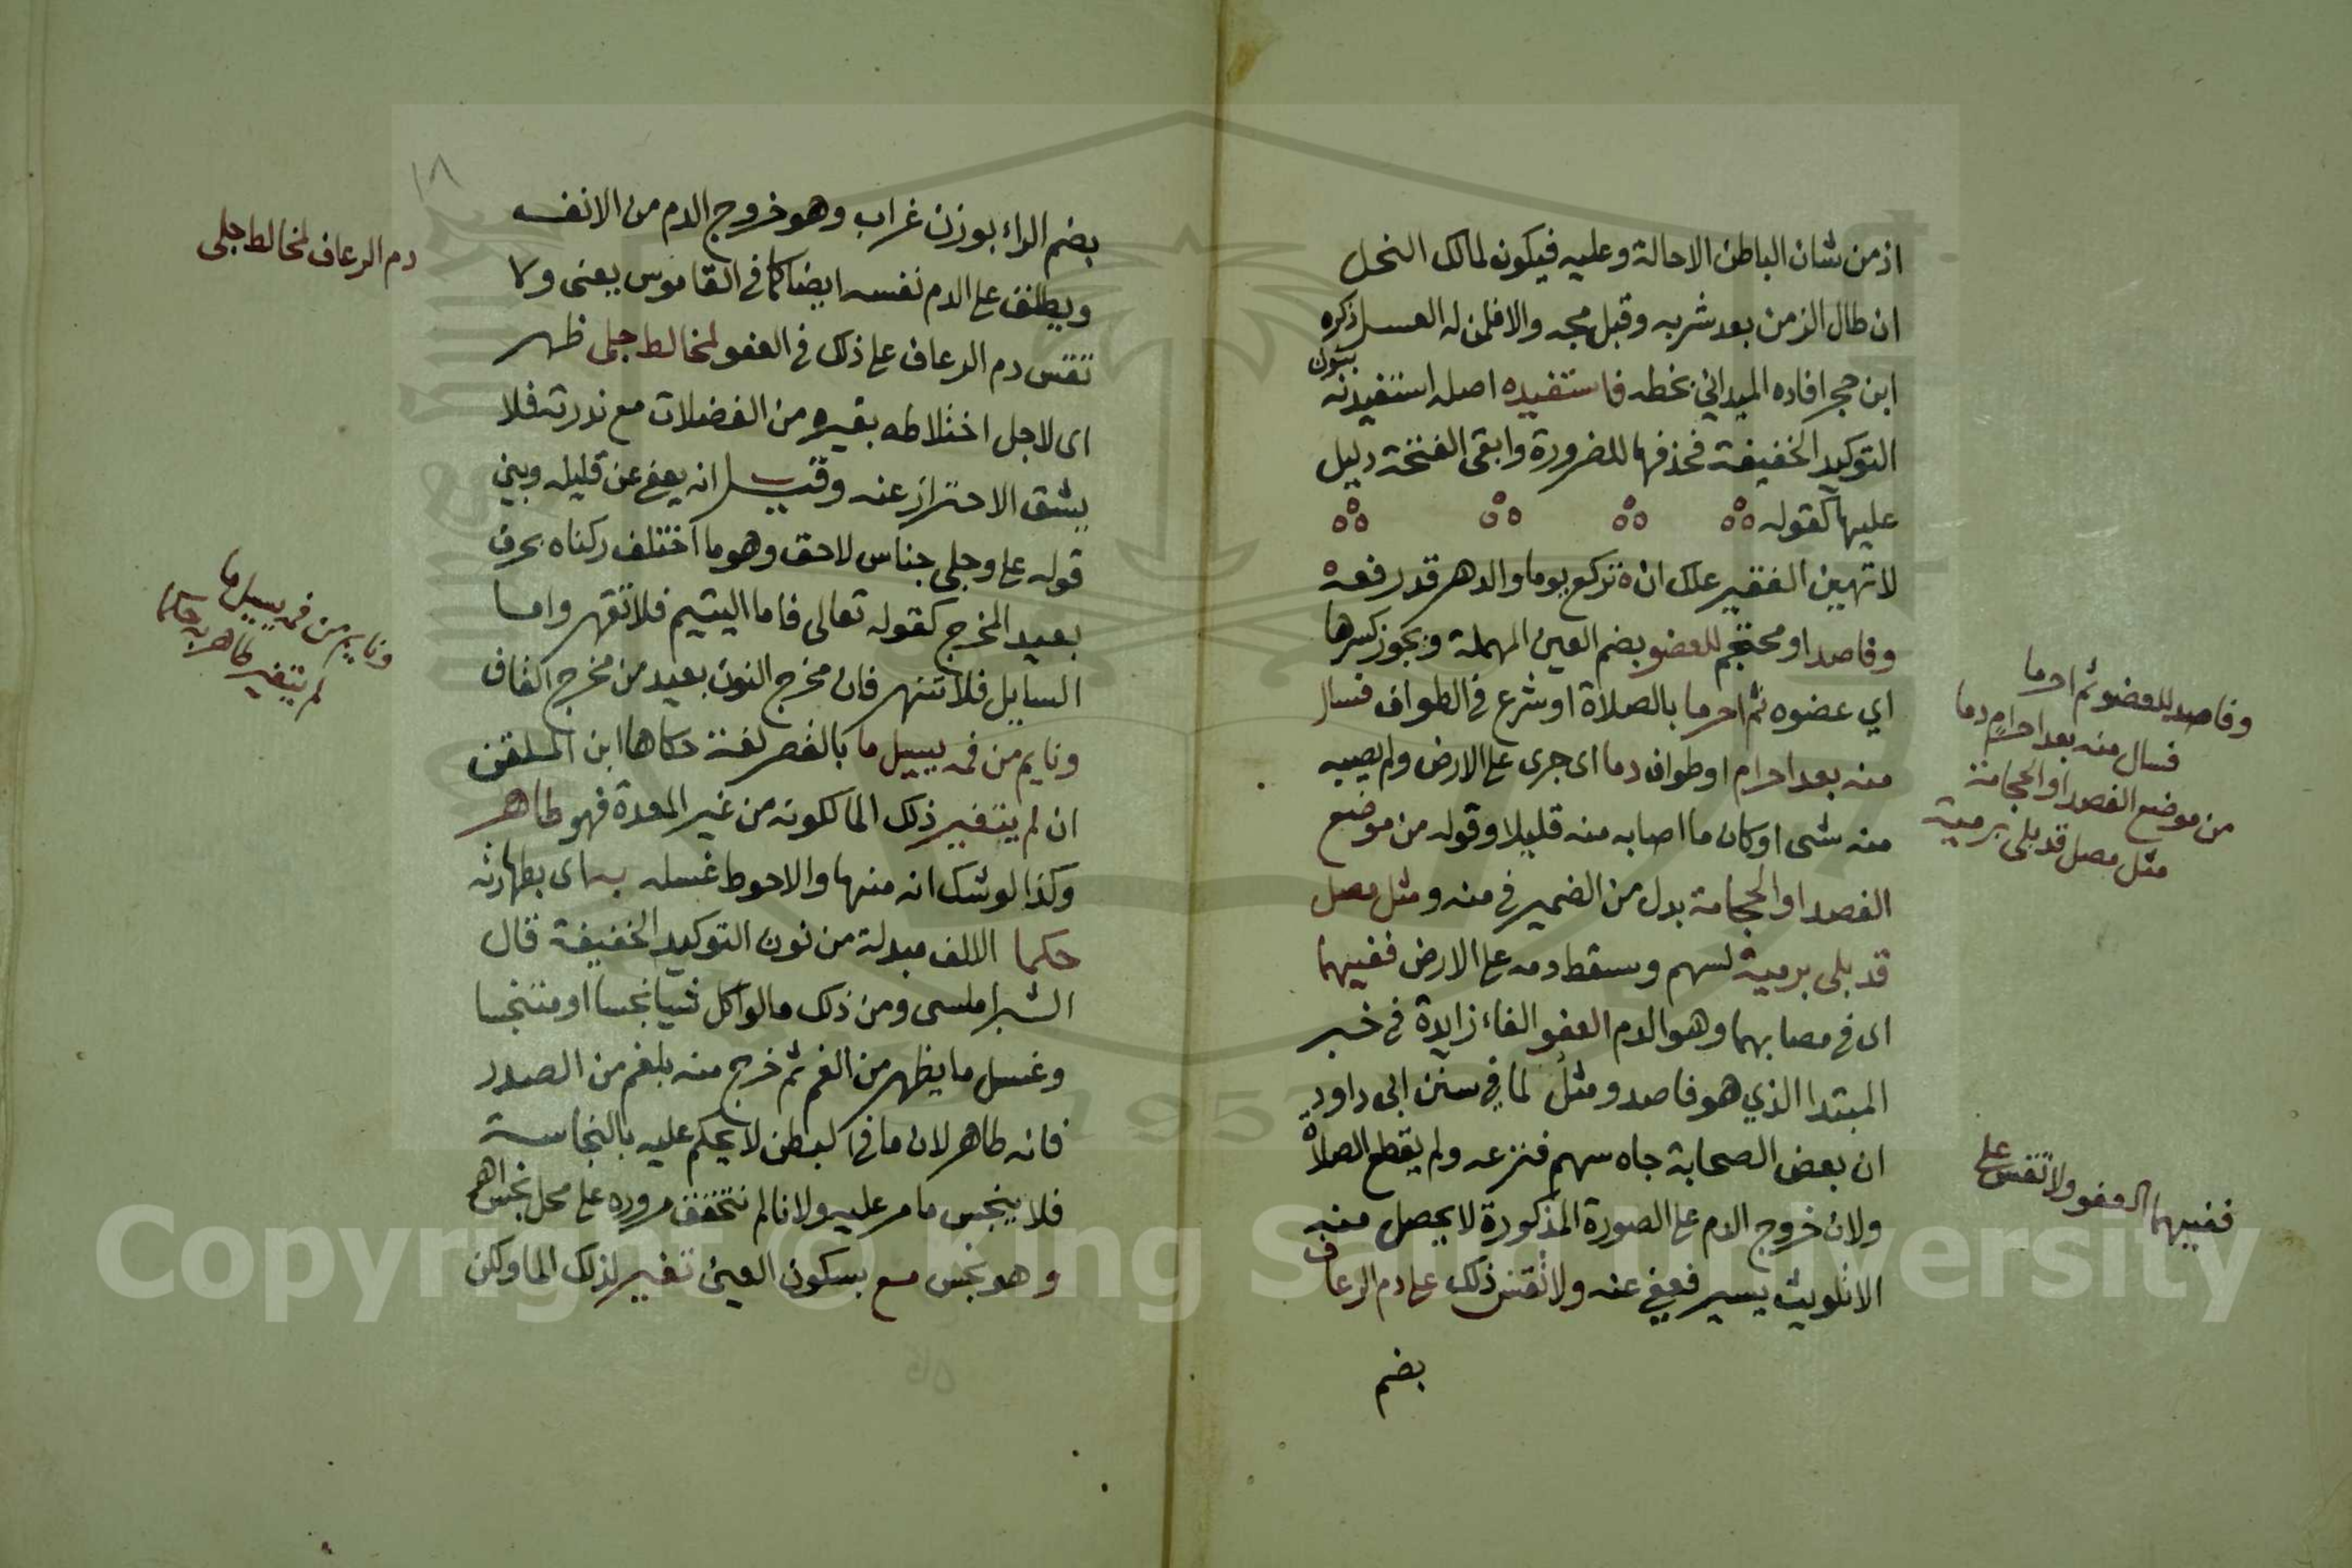 اذ من شان الباطن الاحالة وعليه فيكون لمالك النحل
ان طال الزمن بعد شربه وقبل مجه والا فلمن له العسل ذكره
ابن حجر افاده الميداني بخطه فاستفيده اصله استفيدنه بنون
التوكيد الخفيفة فحذفها للضرورة وابقى الفتحة دليل
عليها كقوله
لا تهين الفقير علك ان تركع يوما والدهر قد رفعه
وفاصد او محتجم للعضو بضم العين المهملة ويجوز كسرها
اي عضوه ثم احرما بالصلاة او شرع في الطواف فسال
منه بعد احرام او طواف دما اى جرى على الارض ولم يصيبه
منه شى او كان ما اصابه منه قليلا وقوله من موضع
الفصد او الحجامة بدل من الضمير في منه ومثل مصل
قد بلى برمية لسهم وسقط دمه على الارض ففيهما
اى في مصابهما وهو الدم العفو الفاء زايدة في خبر
المبتدا الذي هو فاصد ومثل لما في سنن ابى داود
ان بعض الصحابة جاه سهم فنزعه ولم يقطع الصلاة
ولان خروج الدم على الصورة المذكورة لا يحصل منه
الا تلويث يسير فعفي عنه ولا تقس ذلك على دم الرعاف
بضم
وفاصد للعضو ثم احرما
فسال منه بعد احرام دما
من موضع الفصد او الحجامة
مثل مصل قد بلى برمية
ففيهما العفو ولا تقس على
١٨
بضم الراء بوزن غراب وهو خروج الدم من الانف
ويطلق على الدم نفسه ايضا كما في القاموس يعنى ولا
تقس دم الرعاف على ذلك في العفو لمخالط جلى ظهر
اى لاجل اختلاطه بغيره من الفضلات مع ندرته فلا
يشق الاحتراز عنه وقيل انه يعفى عن قليله وبين
قوله على وجلى جناس لاحق وهو ما اختلف ركناه بحرف
بعيد المخرج كقوله تعالى فاما اليتيم فلا تقهر واما
السايل فلا تنهر فان مخرج النون بعيد من مخرج القاف
ونايم من فمه يسيل ما بالقصر لغة حكاها ابن الملقن
ان لم يتغير ذلك الما لكونه من غير المعدة فهو طاهر
وكذا لو شك انه منها والاحوط غسله به اى بطهارته
حكما الالف مبدلة من نون التوكيد الخفيفة قال
الشبراملسى ومن ذلك ما لو اكل شيا نجسا او متنجسا
وغسل ما يظهر من الفم ثم خرج منه بلغم من الصدر
فانه طاهر لان ما في الباطن لا يحكم عليه بالنجاسة
فلا ينجس ما مر عليه ولانا لم نتحقق مروره على محل نجس اهـ
وهو نجس مع بسكون العين تغير لذلك الما وكن
دم الرعاف لمخالط جلى
ونايم من فمه يسيل ما
لم يتغير طاهر به حكما
Copyright © King Saud University
1957